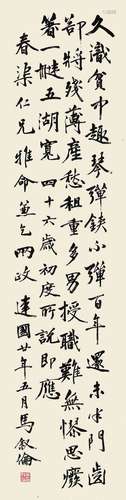 久識貧中趣琴彈鋏不彈百年還未半門齒
卻將殘薄產愁租重多男授職難無憀思廢
箸一艇五湖寬四十六歲初度所說即應
春渠仁兄雅命並乞兩政建國廿年五月馬敘倫